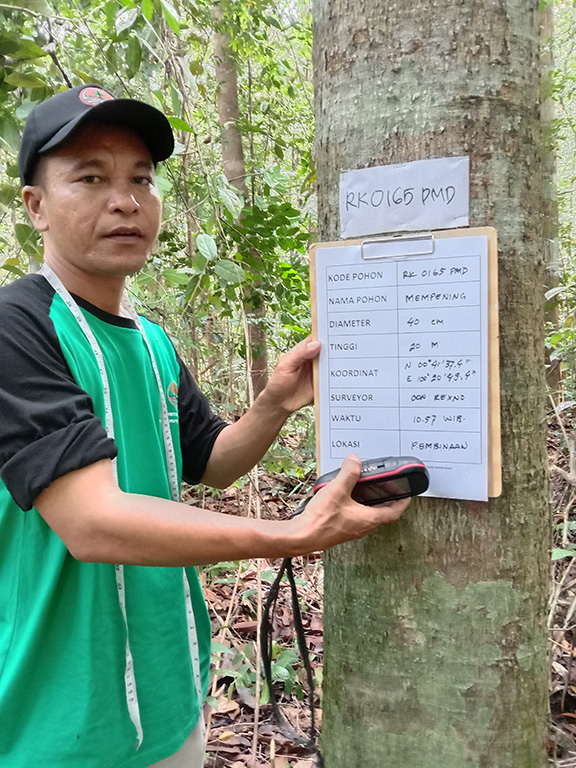 RK0165 PMD
KODE POHON RK 0165 PMD
NAMA POHON MEMPENING
DIAMETER 40 cm
TINGGI 20 M
KOORDINAT N 00°41'37,4"
E 100°20'43,4"
SURVEYOR REXNO
WAKTU 10.57 WIB.
LOKASI PEMBINAAN